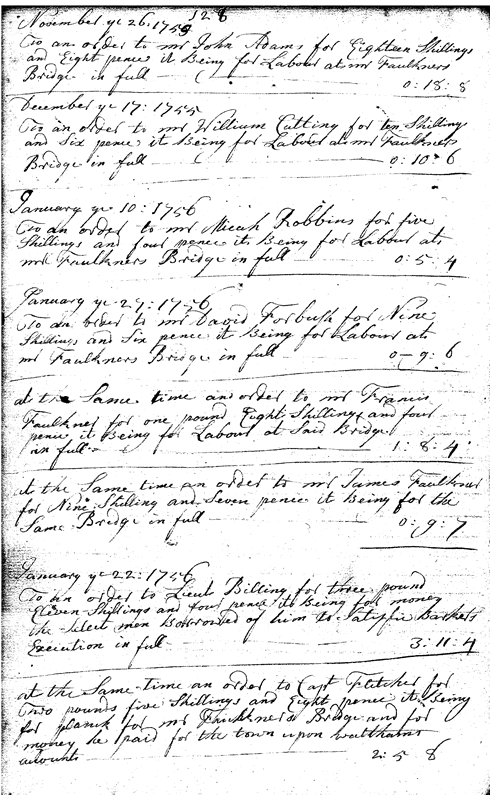 128
November ye 26: 1755
To an order to mr John Adams for Eighteen Shillings
and Eight pence it Being for Labour at mr Faulkners
Bridge in full 0: 18: 8
December ye 17: 1755
To an order to mr William Cutting for ten Shilling
and Six pence it Being for Labour at mr Faulkners
Bridge in full 0: 10: 6
January ye 10: 1756
To an order to mr Micah Robbins for five
Shillings and four pence it Being for Labour at
mr Faulkners Bridge in full 0: 5: 4
January ye 29: 1756
To an order to mr David Forbush for Nine
Shillings and Six pence it Being for Labour at
mr Faulkners Bridge in full 0 - 9: 6
at the Same time an order to mr Francis
Faulkner for one pound Eight Shillings and four
pence it Being for Labour at Said Bridge
in full 1: 8: 4
at the Same time an order to mr James Faulkner
for Nine Shilling and Seven pence it Being for the
Same Bridge in full 0: 9: 7
January ye 22: 1756
To an order to Lieut Billing for three pound
Eleven Shillings and four pence it Being for money
the Select men Borrowed of him to Satisfie Barkers
Execution in full 3: 11: 4
at the Same time an order to Capt Fletcher for
Two pounds five Shillings and Eight pence it Being
for plank for mr Faulkners Bridge and for
money he paid for the town upon walthams
accounts 2: 5 8